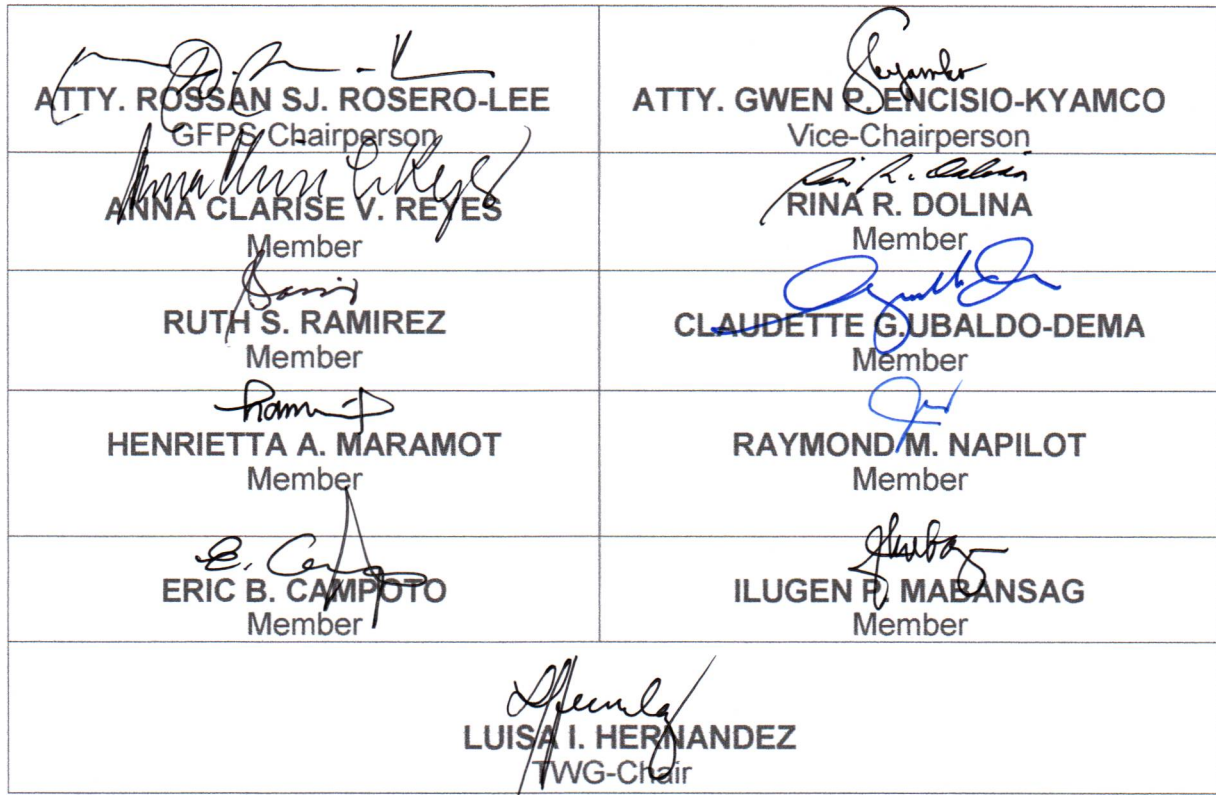 ATTY. ROSSAN SJ. ROSERO-LEE
GFPS Chairperson
ATTY. GWEN P. ENCISIO-KYAMCO
Vice-Chairperson
ANNA CLARISE V. REYES
Member
RINA R. DOLINA
Member
RUTH S. RAMIREZ
Member
CLAUDETTE G.UBALDO-DEMA
Member
HENRIETTA A. MARAMOT
Member
RAYMOND M. NAPILOT
Member
ERIC B. CAMPOTO
Member
ILUGEN P. MABANSAG
Member
LUISA I. HERNANDEZ
TWG-Chair